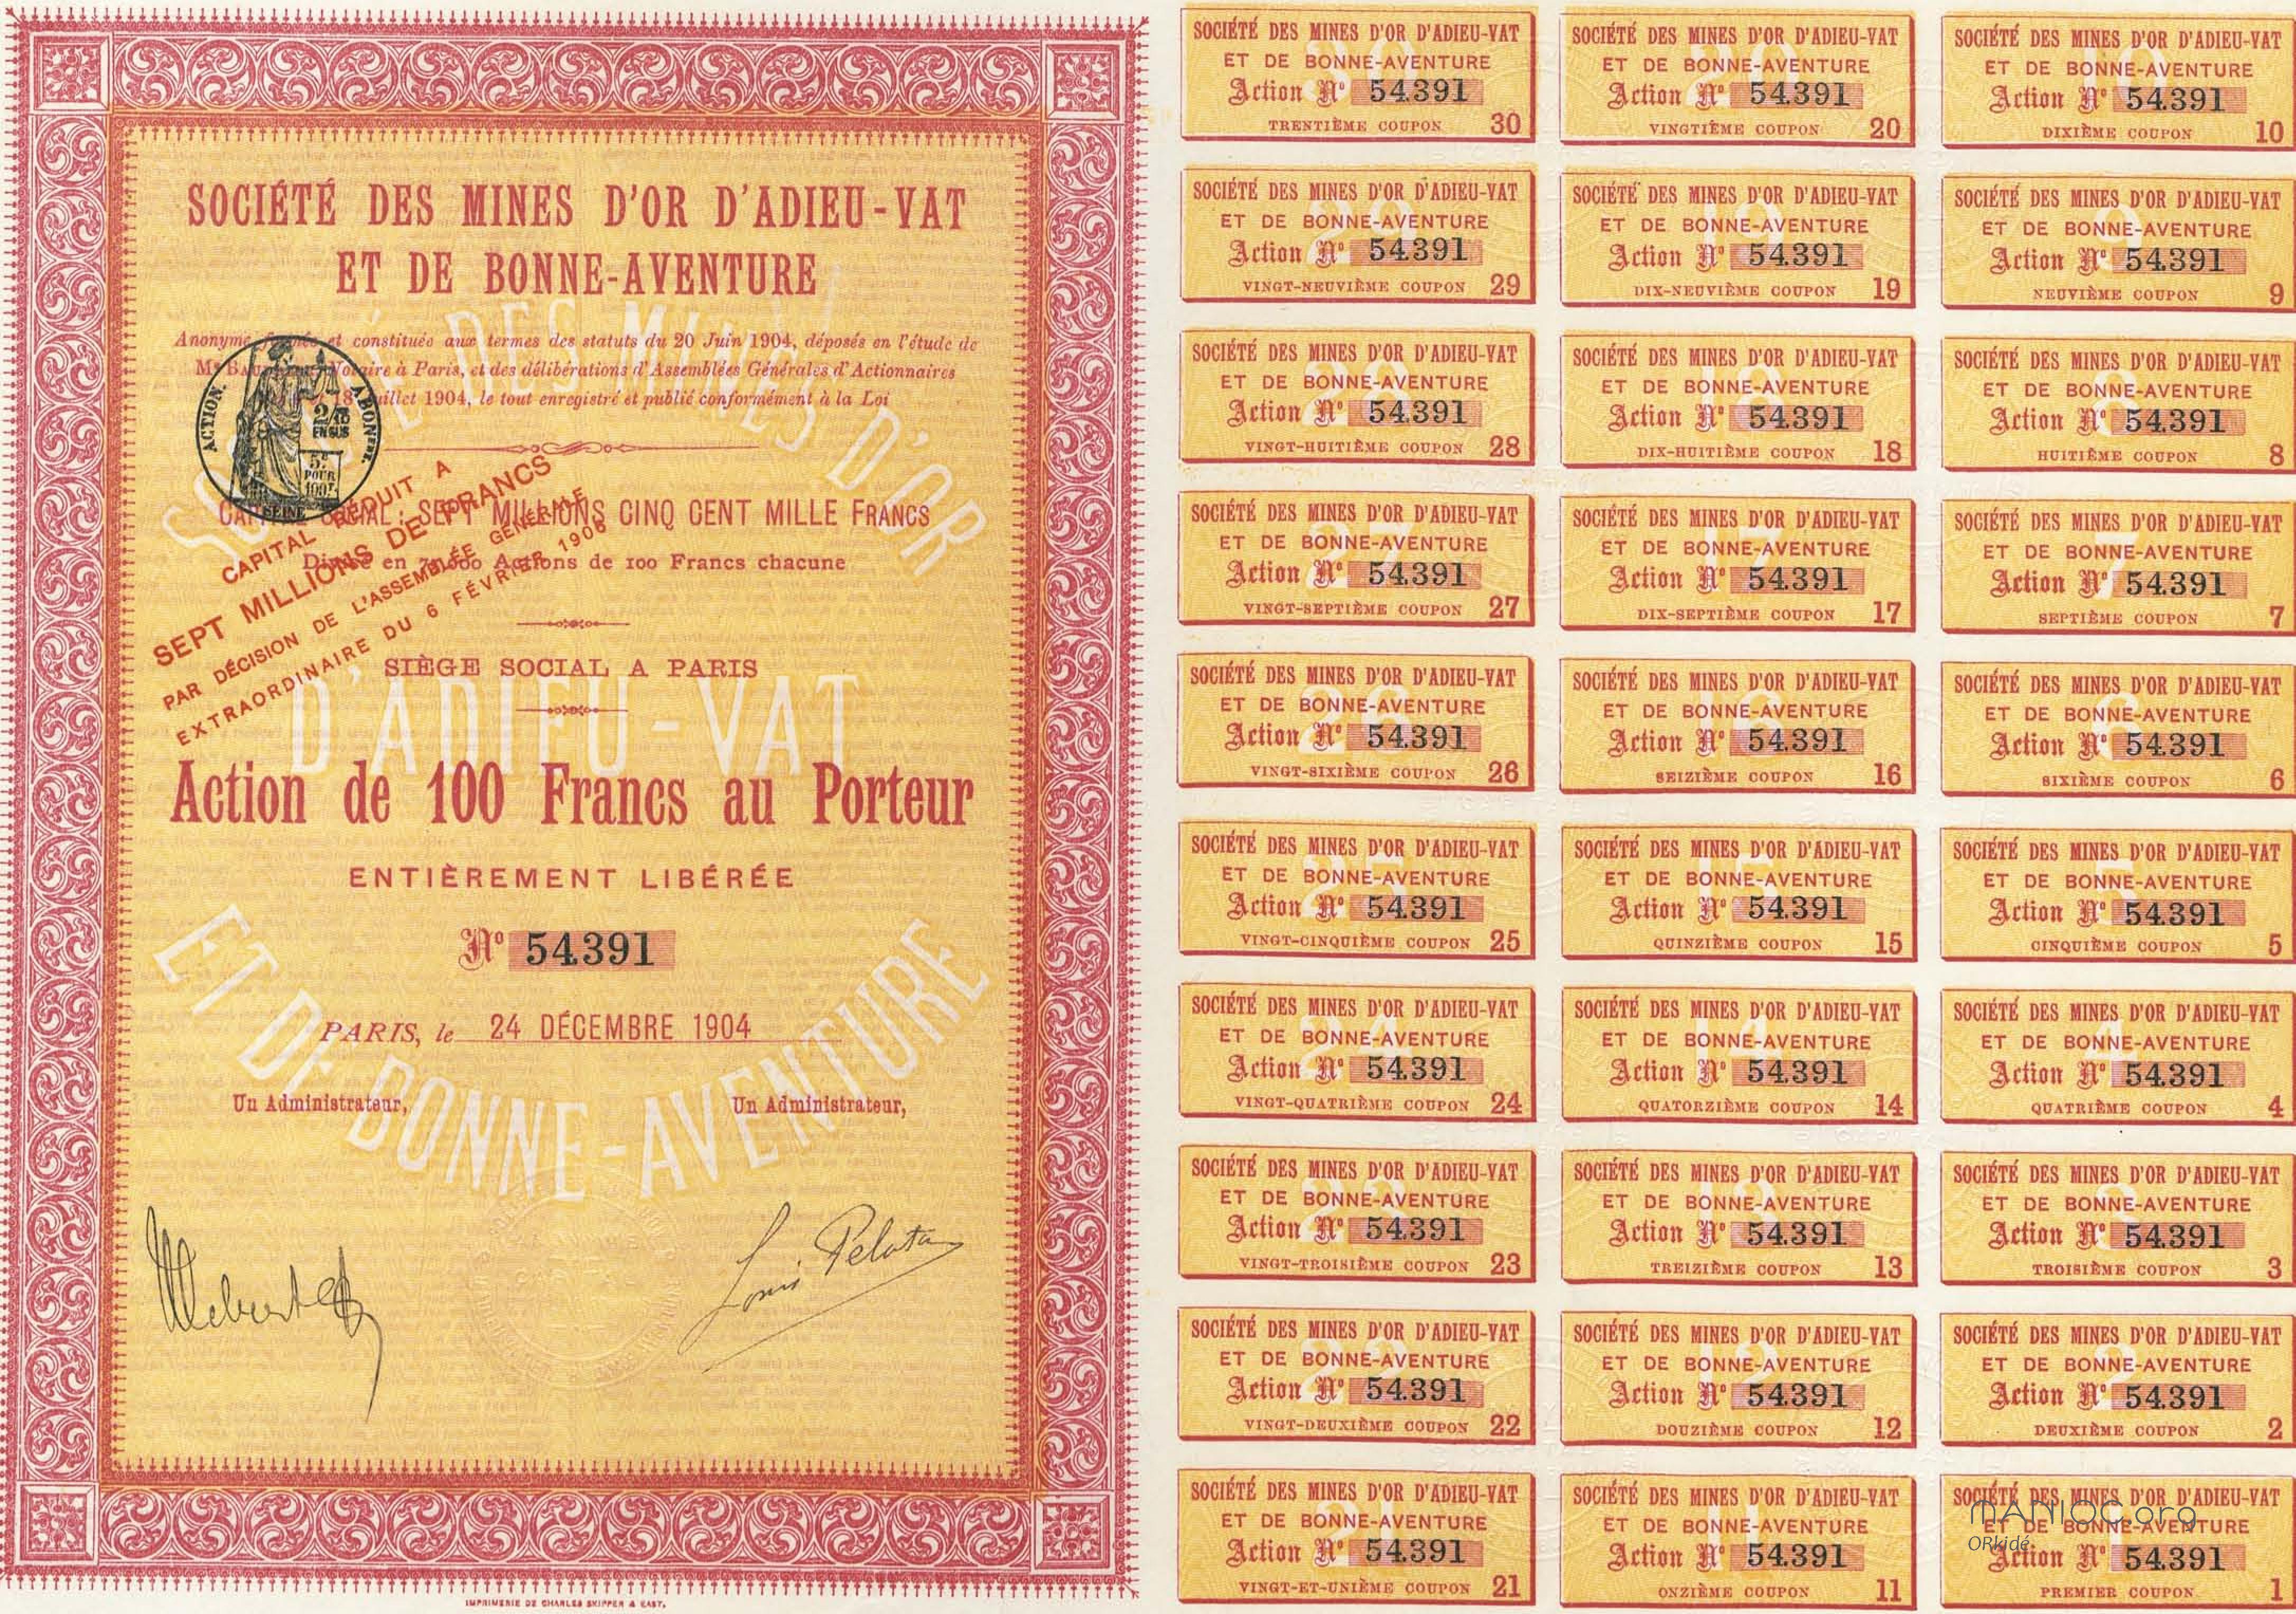 SOCIÉTÉ DES MINES D'OR D'ADIEU-VAT
ET DE BONNE-AVENTURE
Anonyme et constituée aux termes des statuts du 20 Juin 1904, déposés en l'étude de
Notaire à Paris, et des délibérations d'Assemblées Générales d'Actionnaires
1904, le tout enregistré et publié conformément à la Loi
ACTION.
ABONT.
2/10
EN SUS
5c
POUR
100F
SEINE
SOCIAL : SEPT MILLIONS CINQ CENT MILLE FRANCS
Divisé en Actions de 100 Francs chacune
CAPITAL RÉDUIT A
SEPT MILLIONS DE FRANCS
PAR DÉCISION DE L'ASSEMBLÉE GÉNÉRALE
EXTRAORDINAIRE DU 6 FÉVRIER 1906
SIÈGE SOCIAL A PARIS
SOCIÉTÉ DES MINES D'OR
D'ADIEU-VAT
ET DE BONNE-AVENTURE
Action de 100 Francs au Porteur
ENTIÈREMENT LIBÉRÉE
No 54.391
PARIS, le 24 DÉCEMBRE 1904
Un Administrateur, Un Administrateur,
Louis
IMPRIMERIE DE CHARLES SKIPPER & EAST.
SOCIÉTÉ DES MINES D'OR D'ADIEU-VAT
ET DE BONNE-AVENTURE
Action No 54.391
TRENTIÈME COUPON 30
SOCIÉTÉ DES MINES D'OR D'ADIEU-VAT
ET DE BONNE-AVENTURE
Action No 54.391
VINGTIÈME COUPON 20
SOCIÉTÉ DES MINES D'OR D'ADIEU-VAT
ET DE BONNE-AVENTURE
Action No 54.391
DIXIÈME COUPON 10
SOCIÉTÉ DES MINES D'OR D'ADIEU-VAT
ET DE BONNE-AVENTURE
Action No 54.391
VINGT-NEUVIÈME COUPON 29
SOCIÉTÉ DES MINES D'OR D'ADIEU-VAT
ET DE BONNE-AVENTURE
Action No 54.391
DIX-NEUVIÈME COUPON 19
SOCIÉTÉ DES MINES D'OR D'ADIEU-VAT
ET DE BONNE-AVENTURE
Action No 54.391
NEUVIÈME COUPON 9
SOCIÉTÉ DES MINES D'OR D'ADIEU-VAT
ET DE BONNE-AVENTURE
Action No 54.391
VINGT-HUITIÈME COUPON 28
SOCIÉTÉ DES MINES D'OR D'ADIEU-VAT
ET DE BONNE-AVENTURE
Action No 54.391
DIX-HUITIÈME COUPON 18
SOCIÉTÉ DES MINES D'OR D'ADIEU-VAT
ET DE BONNE-AVENTURE
Action No 54.391
HUITIÈME COUPON 8
SOCIÉTÉ DES MINES D'OR D'ADIEU-VAT
ET DE BONNE-AVENTURE
Action No 54.391
VINGT-SEPTIÈME COUPON 27
SOCIÉTÉ DES MINES D'OR D'ADIEU-VAT
ET DE BONNE-AVENTURE
Action No 54.391
DIX-SEPTIÈME COUPON 17
SOCIÉTÉ DES MINES D'OR D'ADIEU-VAT
ET DE BONNE-AVENTURE
Action No 54.391
SEPTIÈME COUPON 7
SOCIÉTÉ DES MINES D'OR D'ADIEU-VAT
ET DE BONNE-AVENTURE
Action No 54.391
VINGT-SIXIÈME COUPON 26
SOCIÉTÉ DES MINES D'OR D'ADIEU-VAT
ET DE BONNE-AVENTURE
Action No 54.391
SEIZIÈME COUPON 16
SOCIÉTÉ DES MINES D'OR D'ADIEU-VAT
ET DE BONNE-AVENTURE
Action No 54.391
SIXIÈME COUPON 6
SOCIÉTÉ DES MINES D'OR D'ADIEU-VAT
ET DE BONNE-AVENTURE
Action No 54.391
VINGT-CINQUIÈME COUPON 25
SOCIÉTÉ DES MINES D'OR D'ADIEU-VAT
ET DE BONNE-AVENTURE
Action No 54.391
QUINZIÈME COUPON 15
SOCIÉTÉ DES MINES D'OR D'ADIEU-VAT
ET DE BONNE-AVENTURE
Action No 54.391
CINQUIÈME COUPON 5
SOCIÉTÉ DES MINES D'OR D'ADIEU-VAT
ET DE BONNE-AVENTURE
Action No 54.391
VINGT-QUATRIÈME COUPON 24
SOCIÉTÉ DES MINES D'OR D'ADIEU-VAT
ET DE BONNE-AVENTURE
Action No 54.391
QUATORZIÈME COUPON 14
SOCIÉTÉ DES MINES D'OR D'ADIEU-VAT
ET DE BONNE-AVENTURE
Action No 54.391
QUATRIÈME COUPON 4
SOCIÉTÉ DES MINES D'OR D'ADIEU-VAT
ET DE BONNE-AVENTURE
Action No 54.391
VINGT-TROISIÈME COUPON 23
SOCIÉTÉ DES MINES D'OR D'ADIEU-VAT
ET DE BONNE-AVENTURE
Action No 54.391
TREIZIÈME COUPON 13
SOCIÉTÉ DES MINES D'OR D'ADIEU-VAT
ET DE BONNE-AVENTURE
Action No 54.391
TROISIÈME COUPON 3
SOCIÉTÉ DES MINES D'OR D'ADIEU-VAT
ET DE BONNE-AVENTURE
Action No 54.391
VINGT-DEUXIÈME COUPON 22
SOCIÉTÉ DES MINES D'OR D'ADIEU-VAT
ET DE BONNE-AVENTURE
Action No 54.391
DOUZIÈME COUPON 12
SOCIÉTÉ DES MINES D'OR D'ADIEU-VAT
ET DE BONNE-AVENTURE
Action No 54.391
DEUXIÈME COUPON 2
SOCIÉTÉ DES MINES D'OR D'ADIEU-VAT
ET DE BONNE-AVENTURE
Action No 54.391
VINGT-ET-UNIÈME COUPON 21
SOCIÉTÉ DES MINES D'OR D'ADIEU-VAT
ET DE BONNE-AVENTURE
Action No 54.391
ONZIÈME COUPON 11
SOCIÉTÉ DES MINES D'OR D'ADIEU-VAT
ET DE BONNE-AVENTURE
Action No 54.391
PREMIER COUPON 1
MANIOC.org
ORkidé